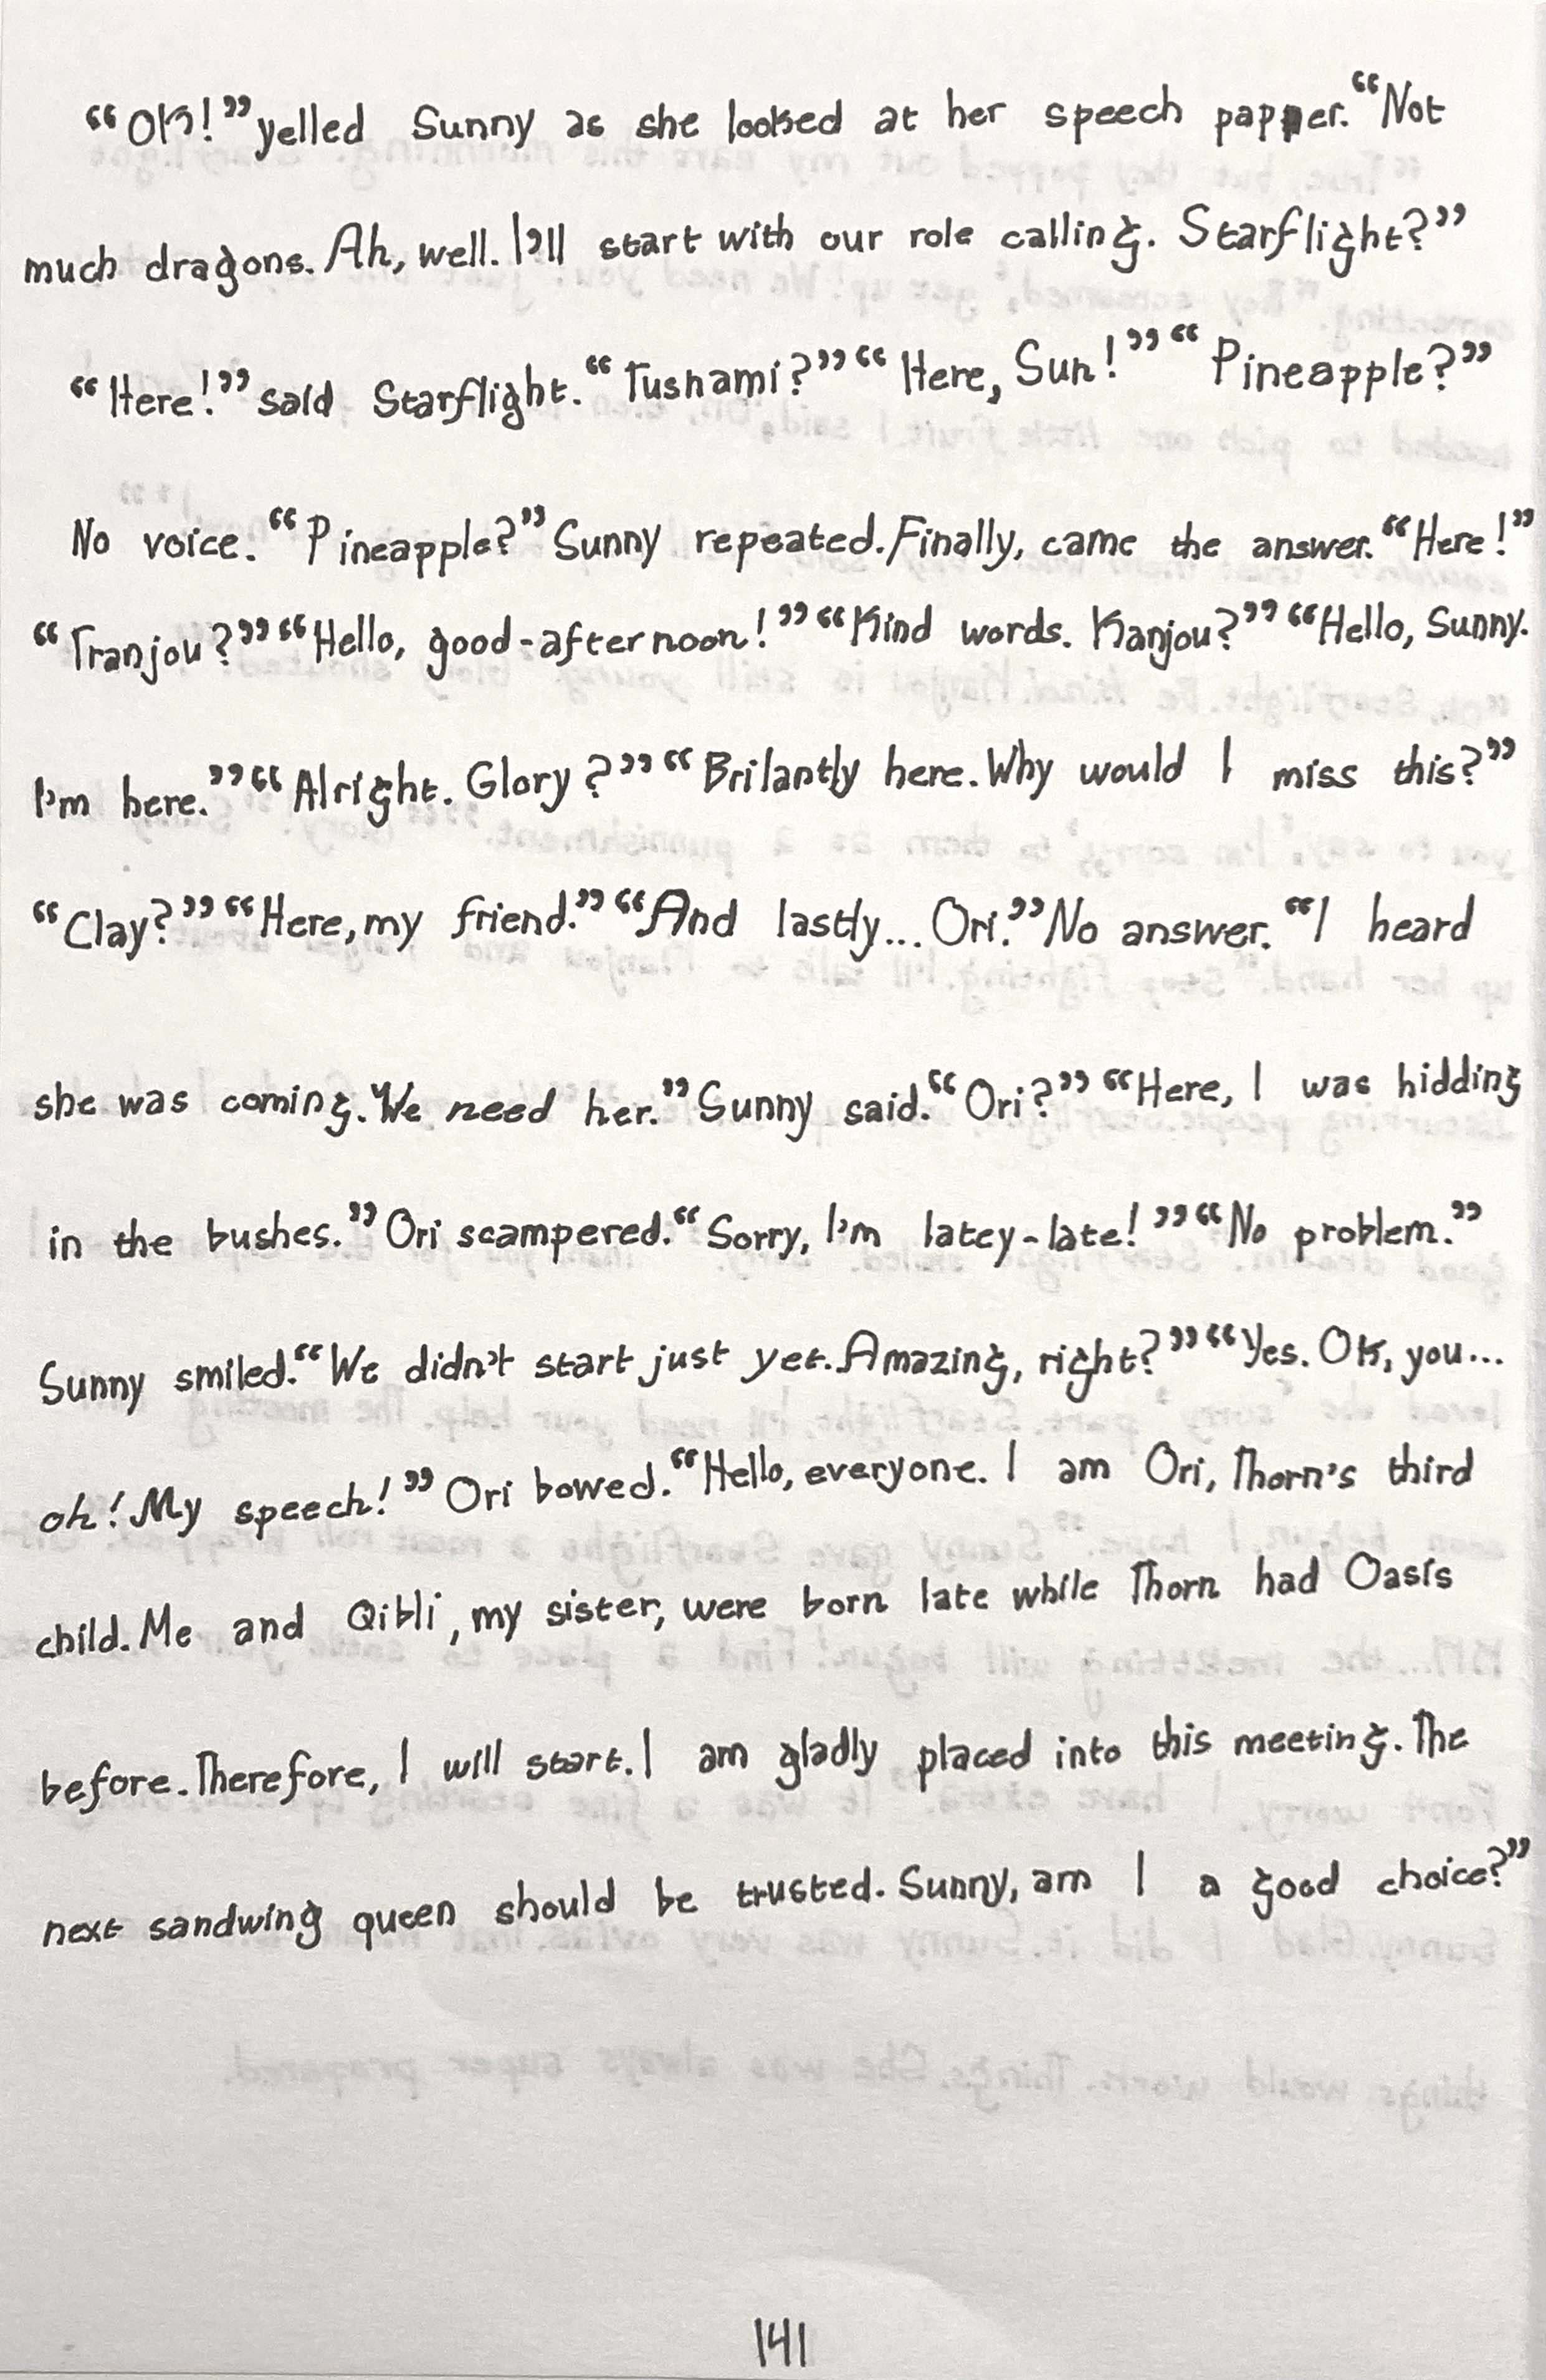 “OK!” yelled Sunny as she looked at her speech papper. “Not
much dragons. Ah, well. I’ll start with our role calling. Starflight?”
“Here!” said Starflight. “Tushami?” “Here, Sun!” “Pineapple?”
No voice. “Pineapple?” Sunny repeated. Finally, came the answer. “Here!”
“Tranjou?” “Hello, good-afternoon!” “Kind words. Kanjou?” “Hello, Sunny.
I’m here.” “Alright. Glory?” “Brilantly here. Why would I miss this?”
“Clay?” “Here, my friend.” “And lastly... Ori.” No answer. “I heard
she was coming. We need her.” Sunny said. “Ori?” “Here, I was hidding
in the bushes.” Ori scampered. “Sorry, I’m latey-late!” “No problem.”
Sunny smiled. “We didn’t start just yet. Amazing, right?” “Yes. OK, you...
oh! My speech!” Ori bowed. “Hello, everyone. I am Ori, Thorn’s third
child. Me and Qibli, my sister, were born late while Thorn had Oasis
before. Therefore, I will start. I am gladly placed into this meeting. The
next sandwing queen should be trusted. Sunny, am I a good choice?”
141